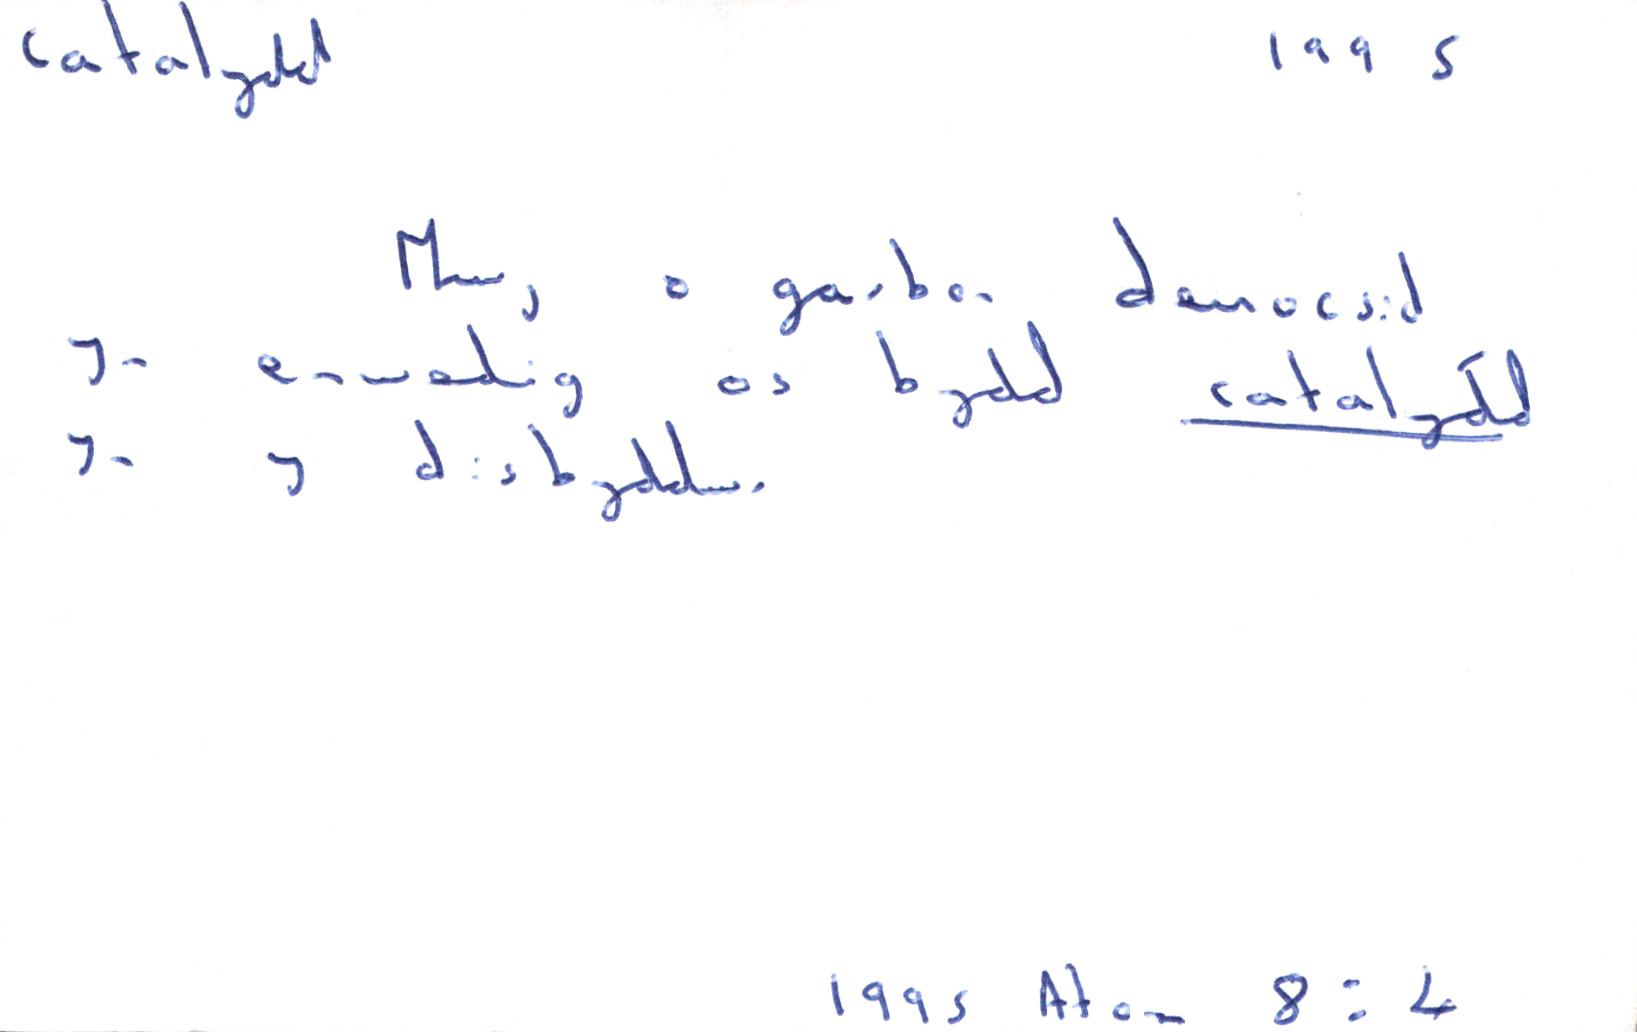 catalydd 1995
Mwy o garbon deuocsid
yn enwedig os bydd catalydd
yn y disbyddu.
1995 Atom 8 : 4